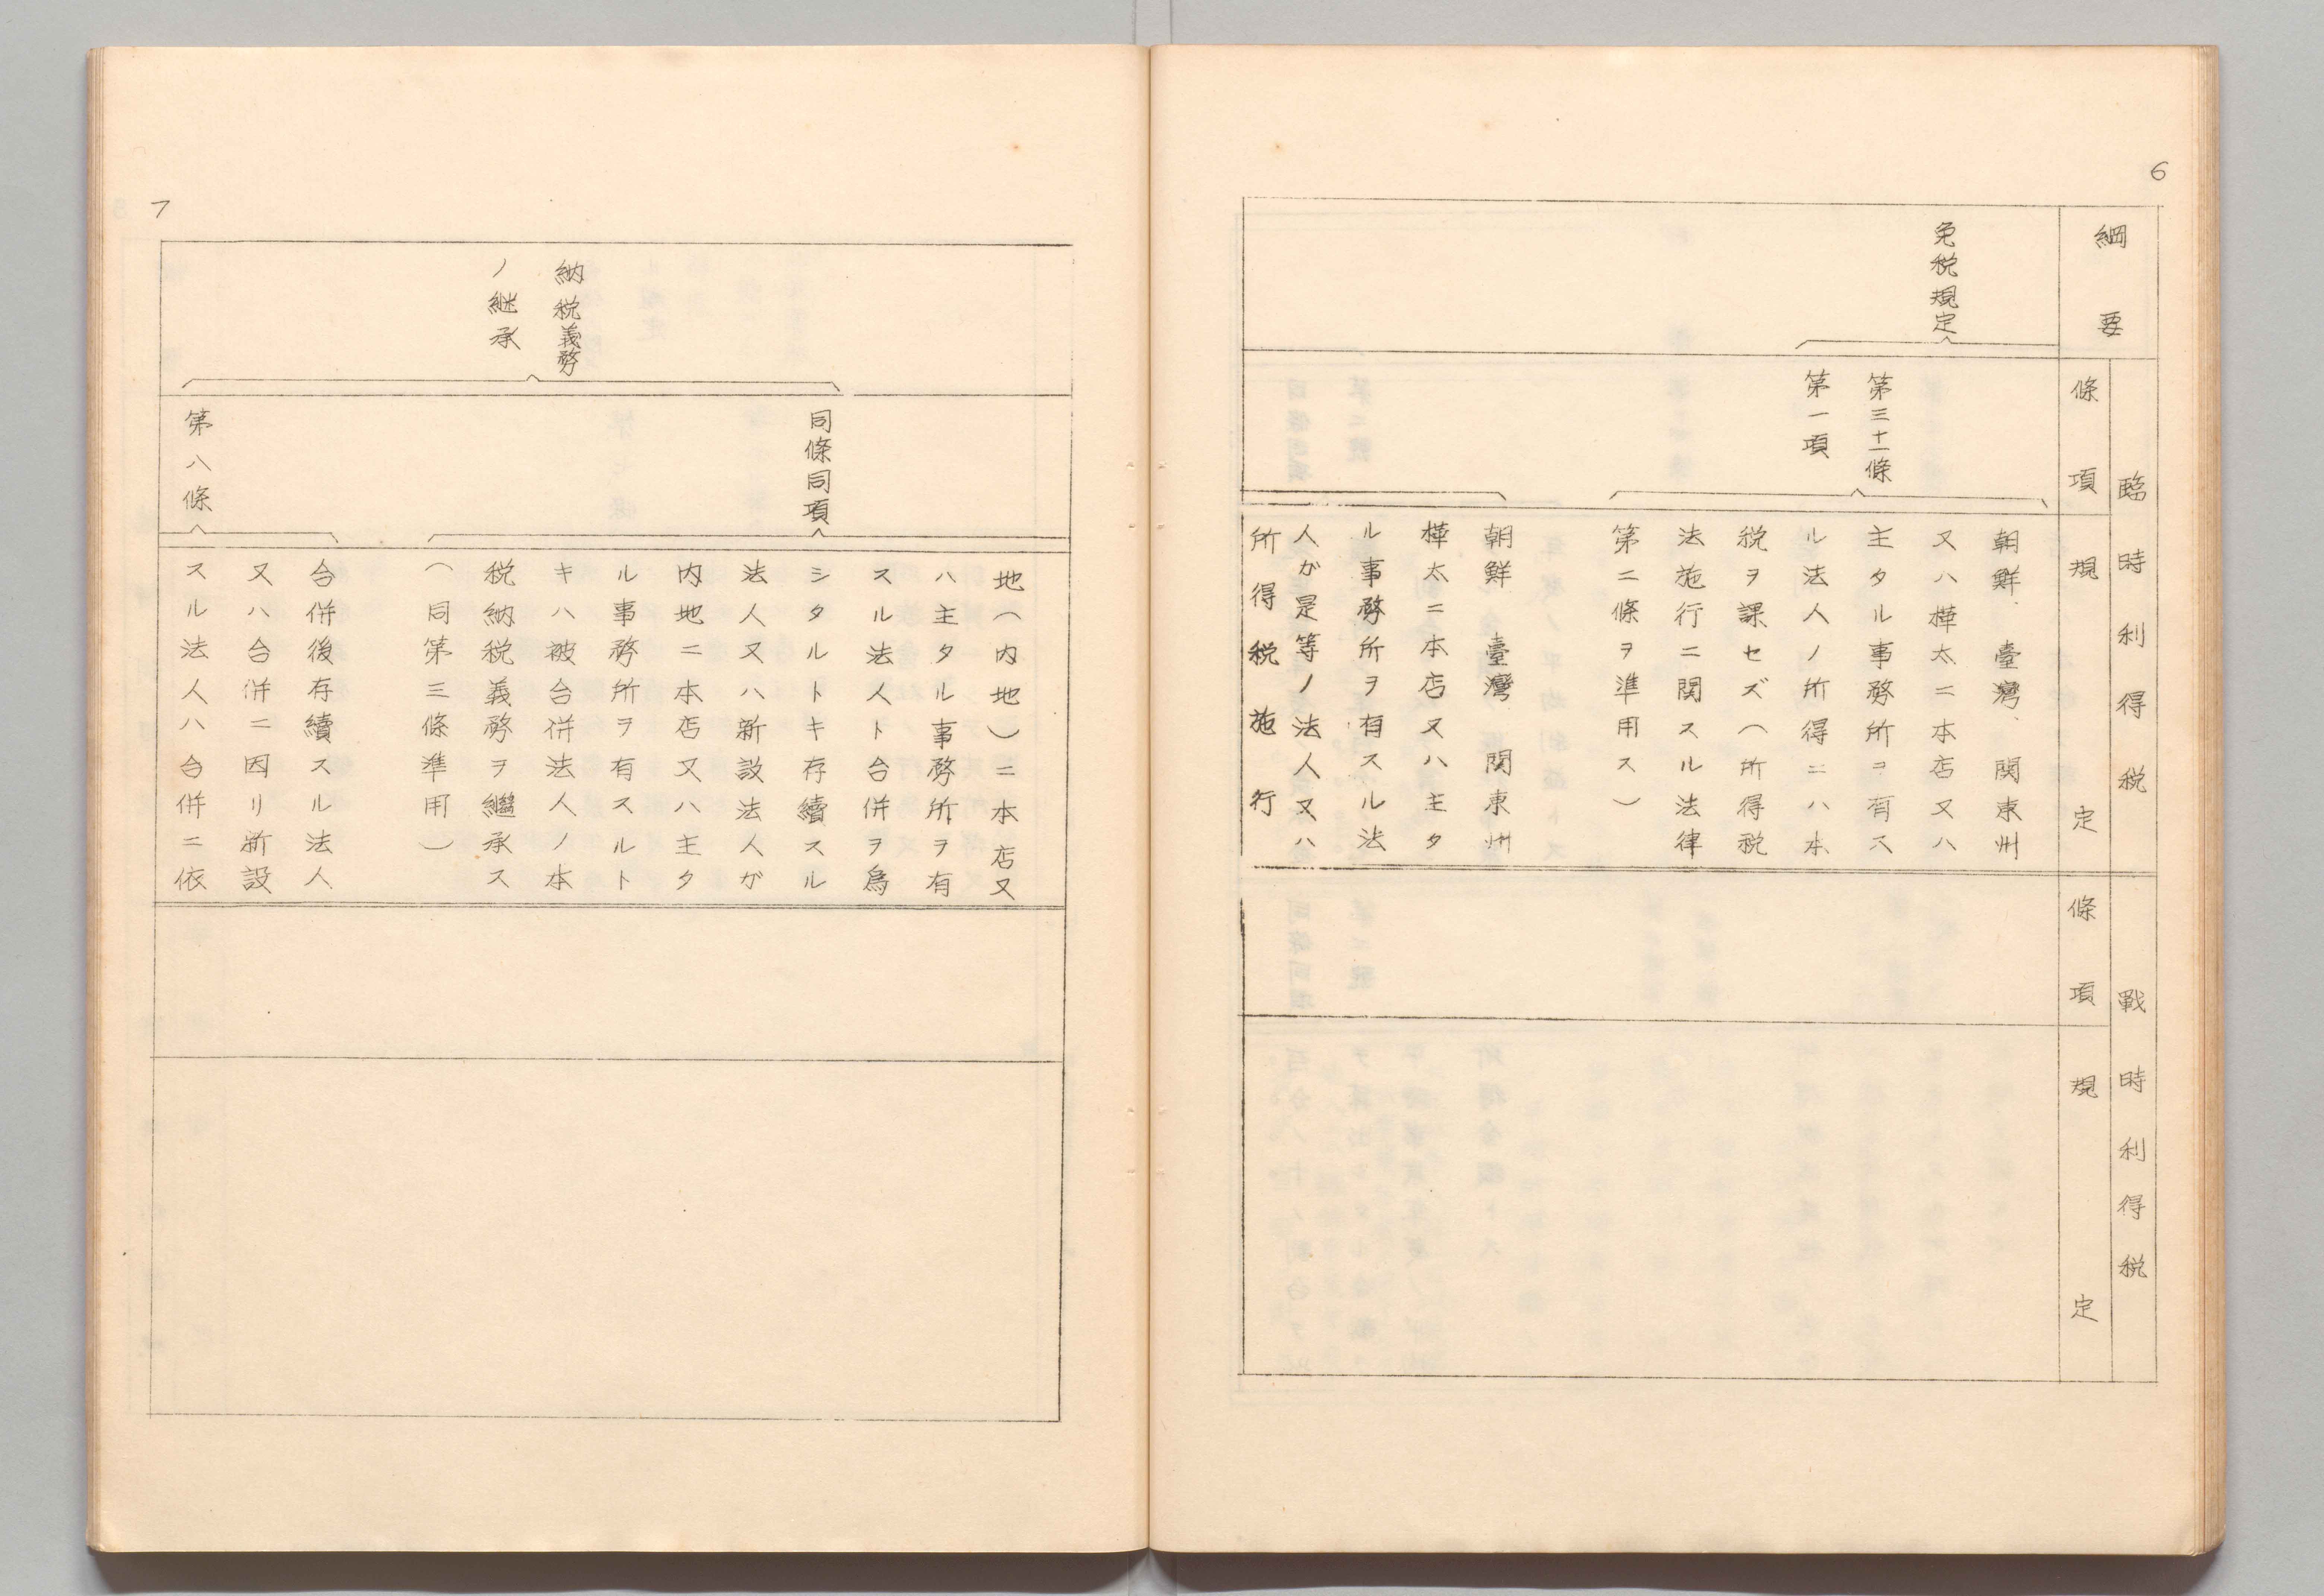 6
綱要
臨時利得税
戰時利得税
條項
規定
條項
規定
免税規定
第三十一條
第一項
朝鮮、臺灣、関東州
又ハ樺太ニ本店又ハ
主タル事務所ヲ有ス
ル法人ノ所得ニハ本
税ヲ課セズ（所得税
法施行ニ関スル法律
第二條ヲ準用ス）
朝鮮　臺灣　関東州
樺太ニ本店又ハ主タ
ル事務所ヲ有スル法
人が是等ノ法人又ハ
所得税施行
7
地（内地）ニ本店又
ハ主タル事務所ヲ有
スル法人ト合併ヲ爲
シタルトキ存續スル
法人又ハ新設法人が
内地ニ本店又ハ主タ
ル事務所ヲ有スルト
キハ被合併法人ノ本
税納税義務ヲ繼承ス
（同第三條準用）
同條同項
納税義務
ノ継承
合併後存續スル法人
又ハ合併ニ因リ新設
スル法人ハ合併ニ依
第八條